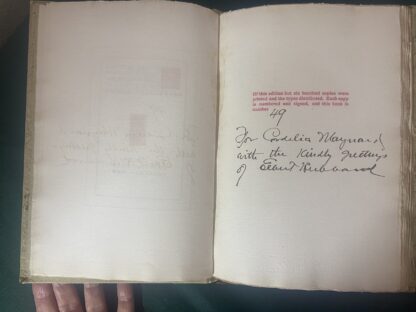 Of this edition but six hundred copies were
printed and the types distributed. Each copy
is numbered and signed, and this book is
number
49
For Cordelia Maynard
with the Kindly greetings
of Elbert Hubbard